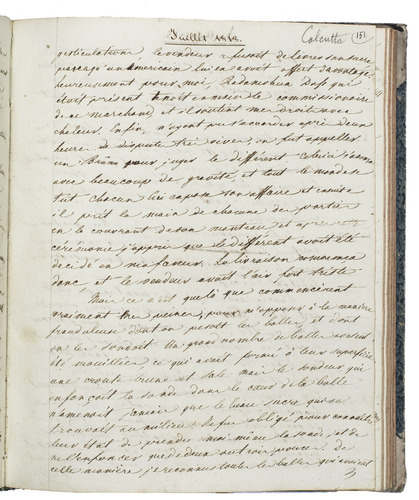 Juillet
Calcutta 151
gesticulations le vendeur refusoit de livrer son sucre
parceque un américain lui en avoit offert davantage
heureusement pour moi, Radamohun Doss qui
étoit présent
ce marchand et il soutint mes droits avec
chaleur. Enfin, n'ayant pu s'accorder après d'une
heure de dispute très vive, on fut appeller
un pour juger le différent
avec beaucoup de gravité et tout le monde se
tut chacun lui exposa son affaire et ensuite
il prit la main de chacune des parties
en le couvrant de son manteau et après cette
cérémonie j'appris que le différent avoit été
décidé en ma faveur. La livraison commença
donc, et le vendeur avoit l'air fort triste
Mais ce n'est que là que commencèrent
vraiment mes peines, pour m'opposer à la manière
frauduleuse dont on pesoit les balles, et dont
on les sondoit. Un grand nombre de balles avoient
été mouillées ce qui avoit formé à leur superficie
une croute brune et sale mais le sondeur qui
enfonçoit la sonde dans le cœur de la balle
n'amenoit jamais que le beau sucre qui se
trouvoit au milieu. Je fus obligé pour connaître
leur état de prendre moi même la sonde, et de
ne l'enfoncer que de deux ou trois pouces, de
cette manière, je reconnus toutes les balles qui avoient